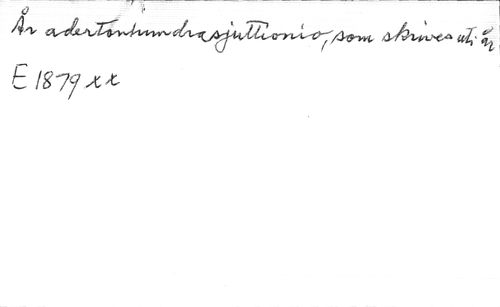 År adertonhundrasjuttionio, som skrives uti år
E 1879 xx